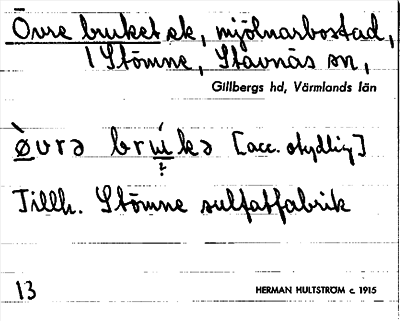 Övre bruket sk, mjölnarbostad,
i Stömne, Stavnäs sn,
Gillbergs hd, Värmlands län
ø̀vrə brúkə [acc. otydlig]
?
Tillh. Stömne sulfatfabrik
13
HERMAN HULTSTRÖM c. 1915